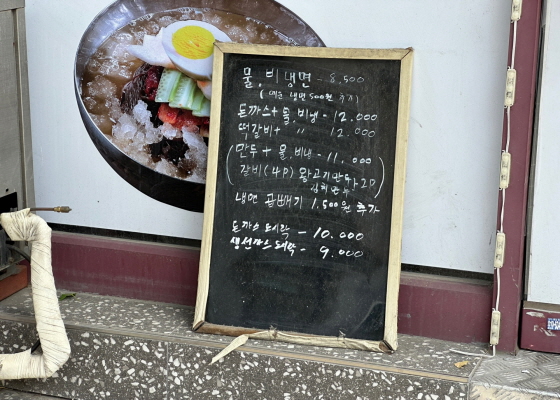 물, 비 냉면 - 8,500
(매운 냉면 500원 추가)
돈까스 + 물, 비냉 - 12.000
떡갈비 + 〃 12.000
만두 + 물, 비냉 - 11.000
갈비(4P) 왕고기만두2P
김치만두
냉면 곱빼기 1.500원 추가
돈까스 도시락 - 10.000
생선까스 도시락 - 9.000